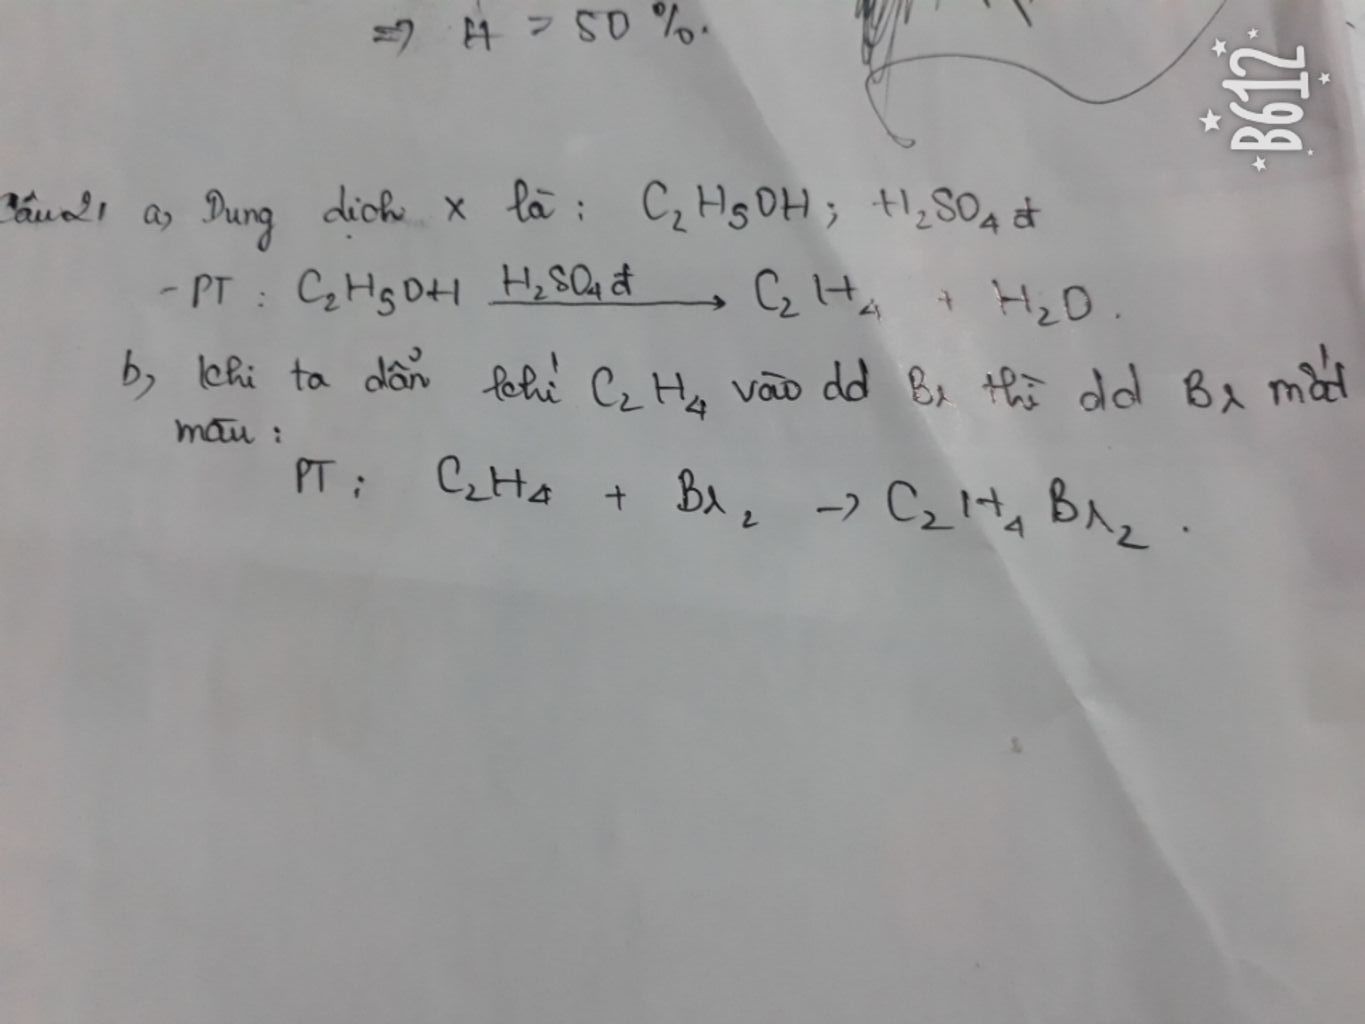 ⇒ H = 50 %.
B612
Câu 21 a, Dung dịch X là : C2H5OH ; H2SO4 đ
- PT : C2H5OH H2SO4 đ → C2H4 + H2O .
b, Khi ta dẩn khí C2H4 vào dd Br thì dd Br mất
màu :
PT : C2H4 + Br2 → C2H4Br2 .